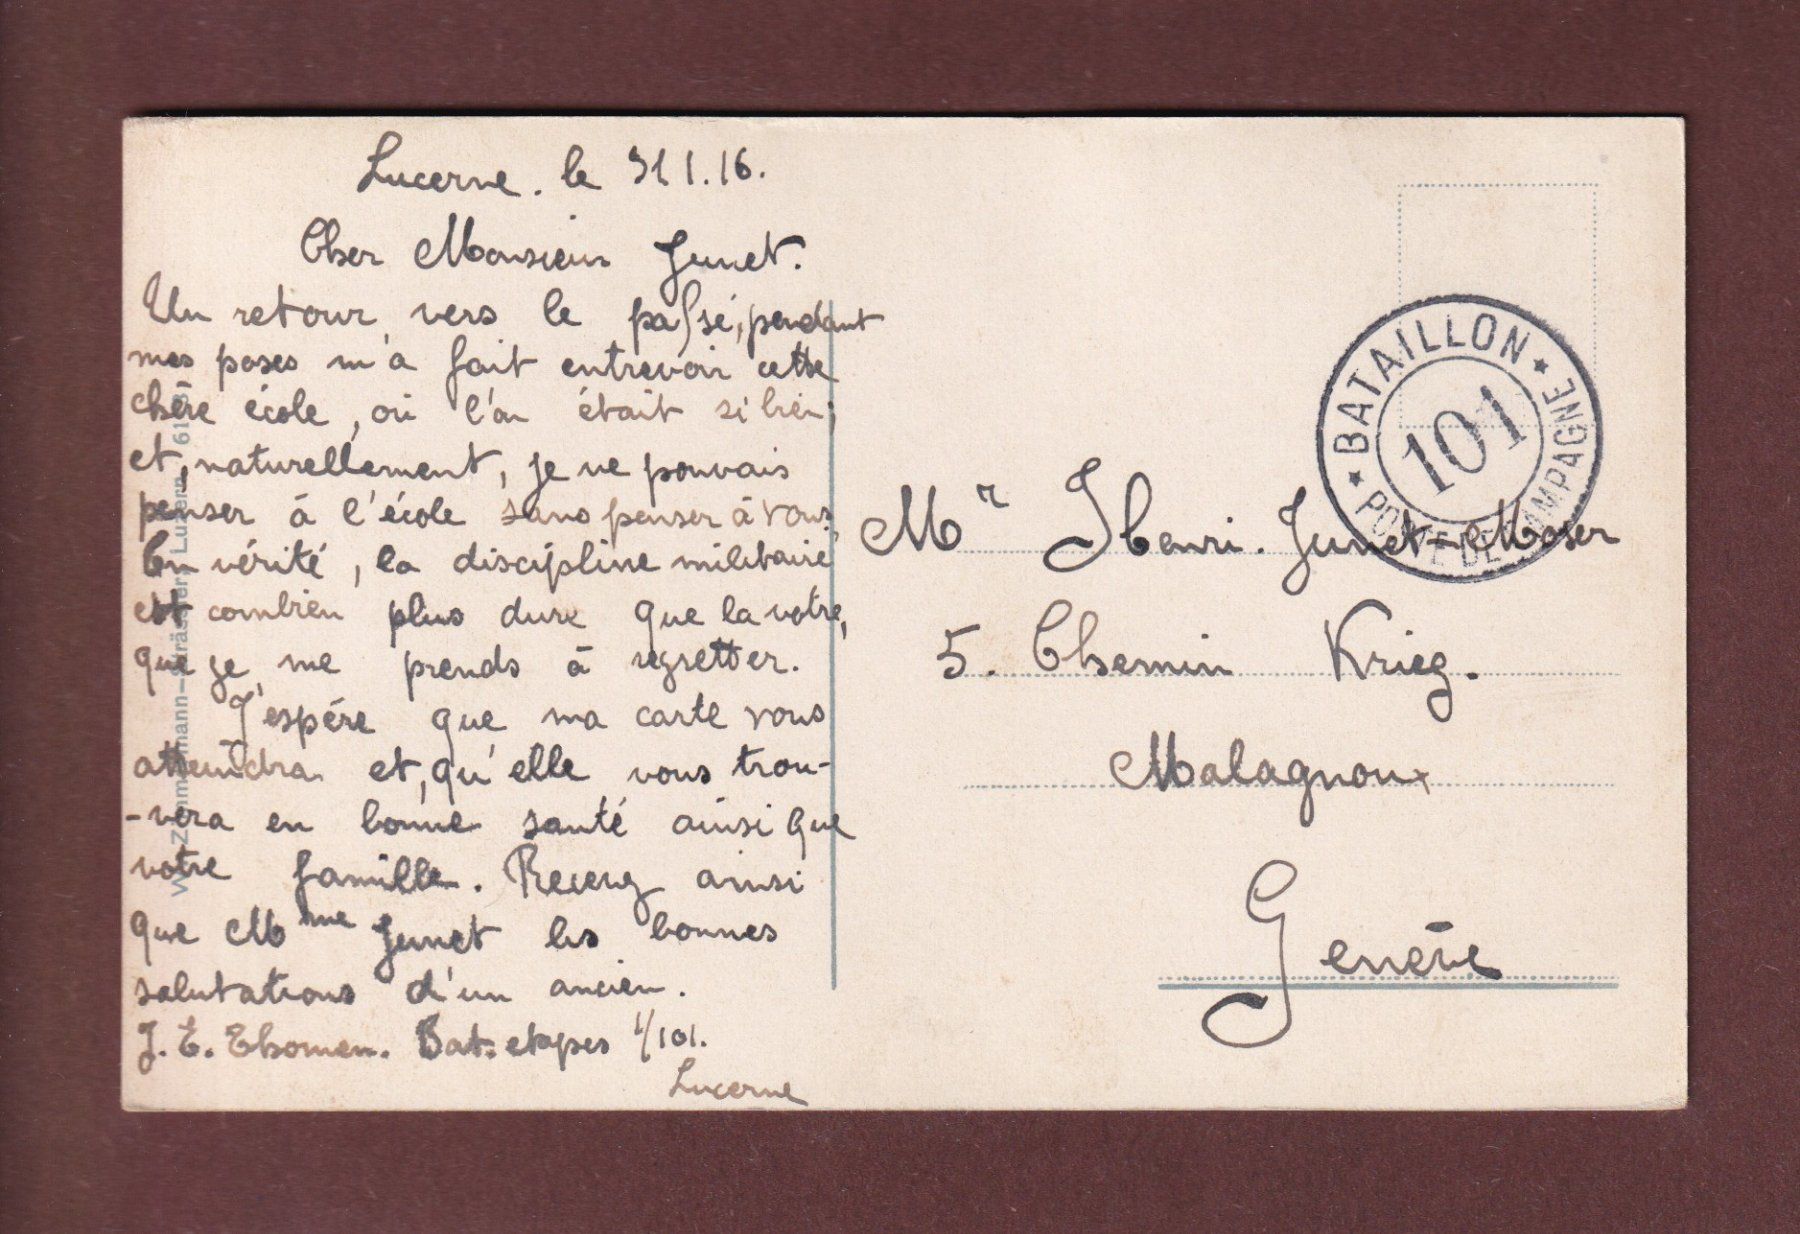 Lucerne. le 31 1.16.
Cher Monsieur Junet.
Un retour vers le passé, pendant
mes poses m'a fait entrevoir cette
chère école, où l'on était si bien,
et, naturellement, je ne pouvais
penser à l'école sans penser à vous
En vérité, la discipline militaire
est combien plus dure que la votre,
que je me prends à regretter.
J'espére que ma carte vous
atteindra et, qu'elle vous trou-
-vera en bonne santé ainsi que
votre famille. Recevez ainsi
que Mme Junet les bonnes
salutations d'un ancien.
J. E. Thomen. Bat. etapes 1/101.
Lucerne
BATAILLON
101
POSTE DE CAMPAGNE
Mr Henri. Junet-Moser
5. Chemin Krieg.
Malagnoux
Genève